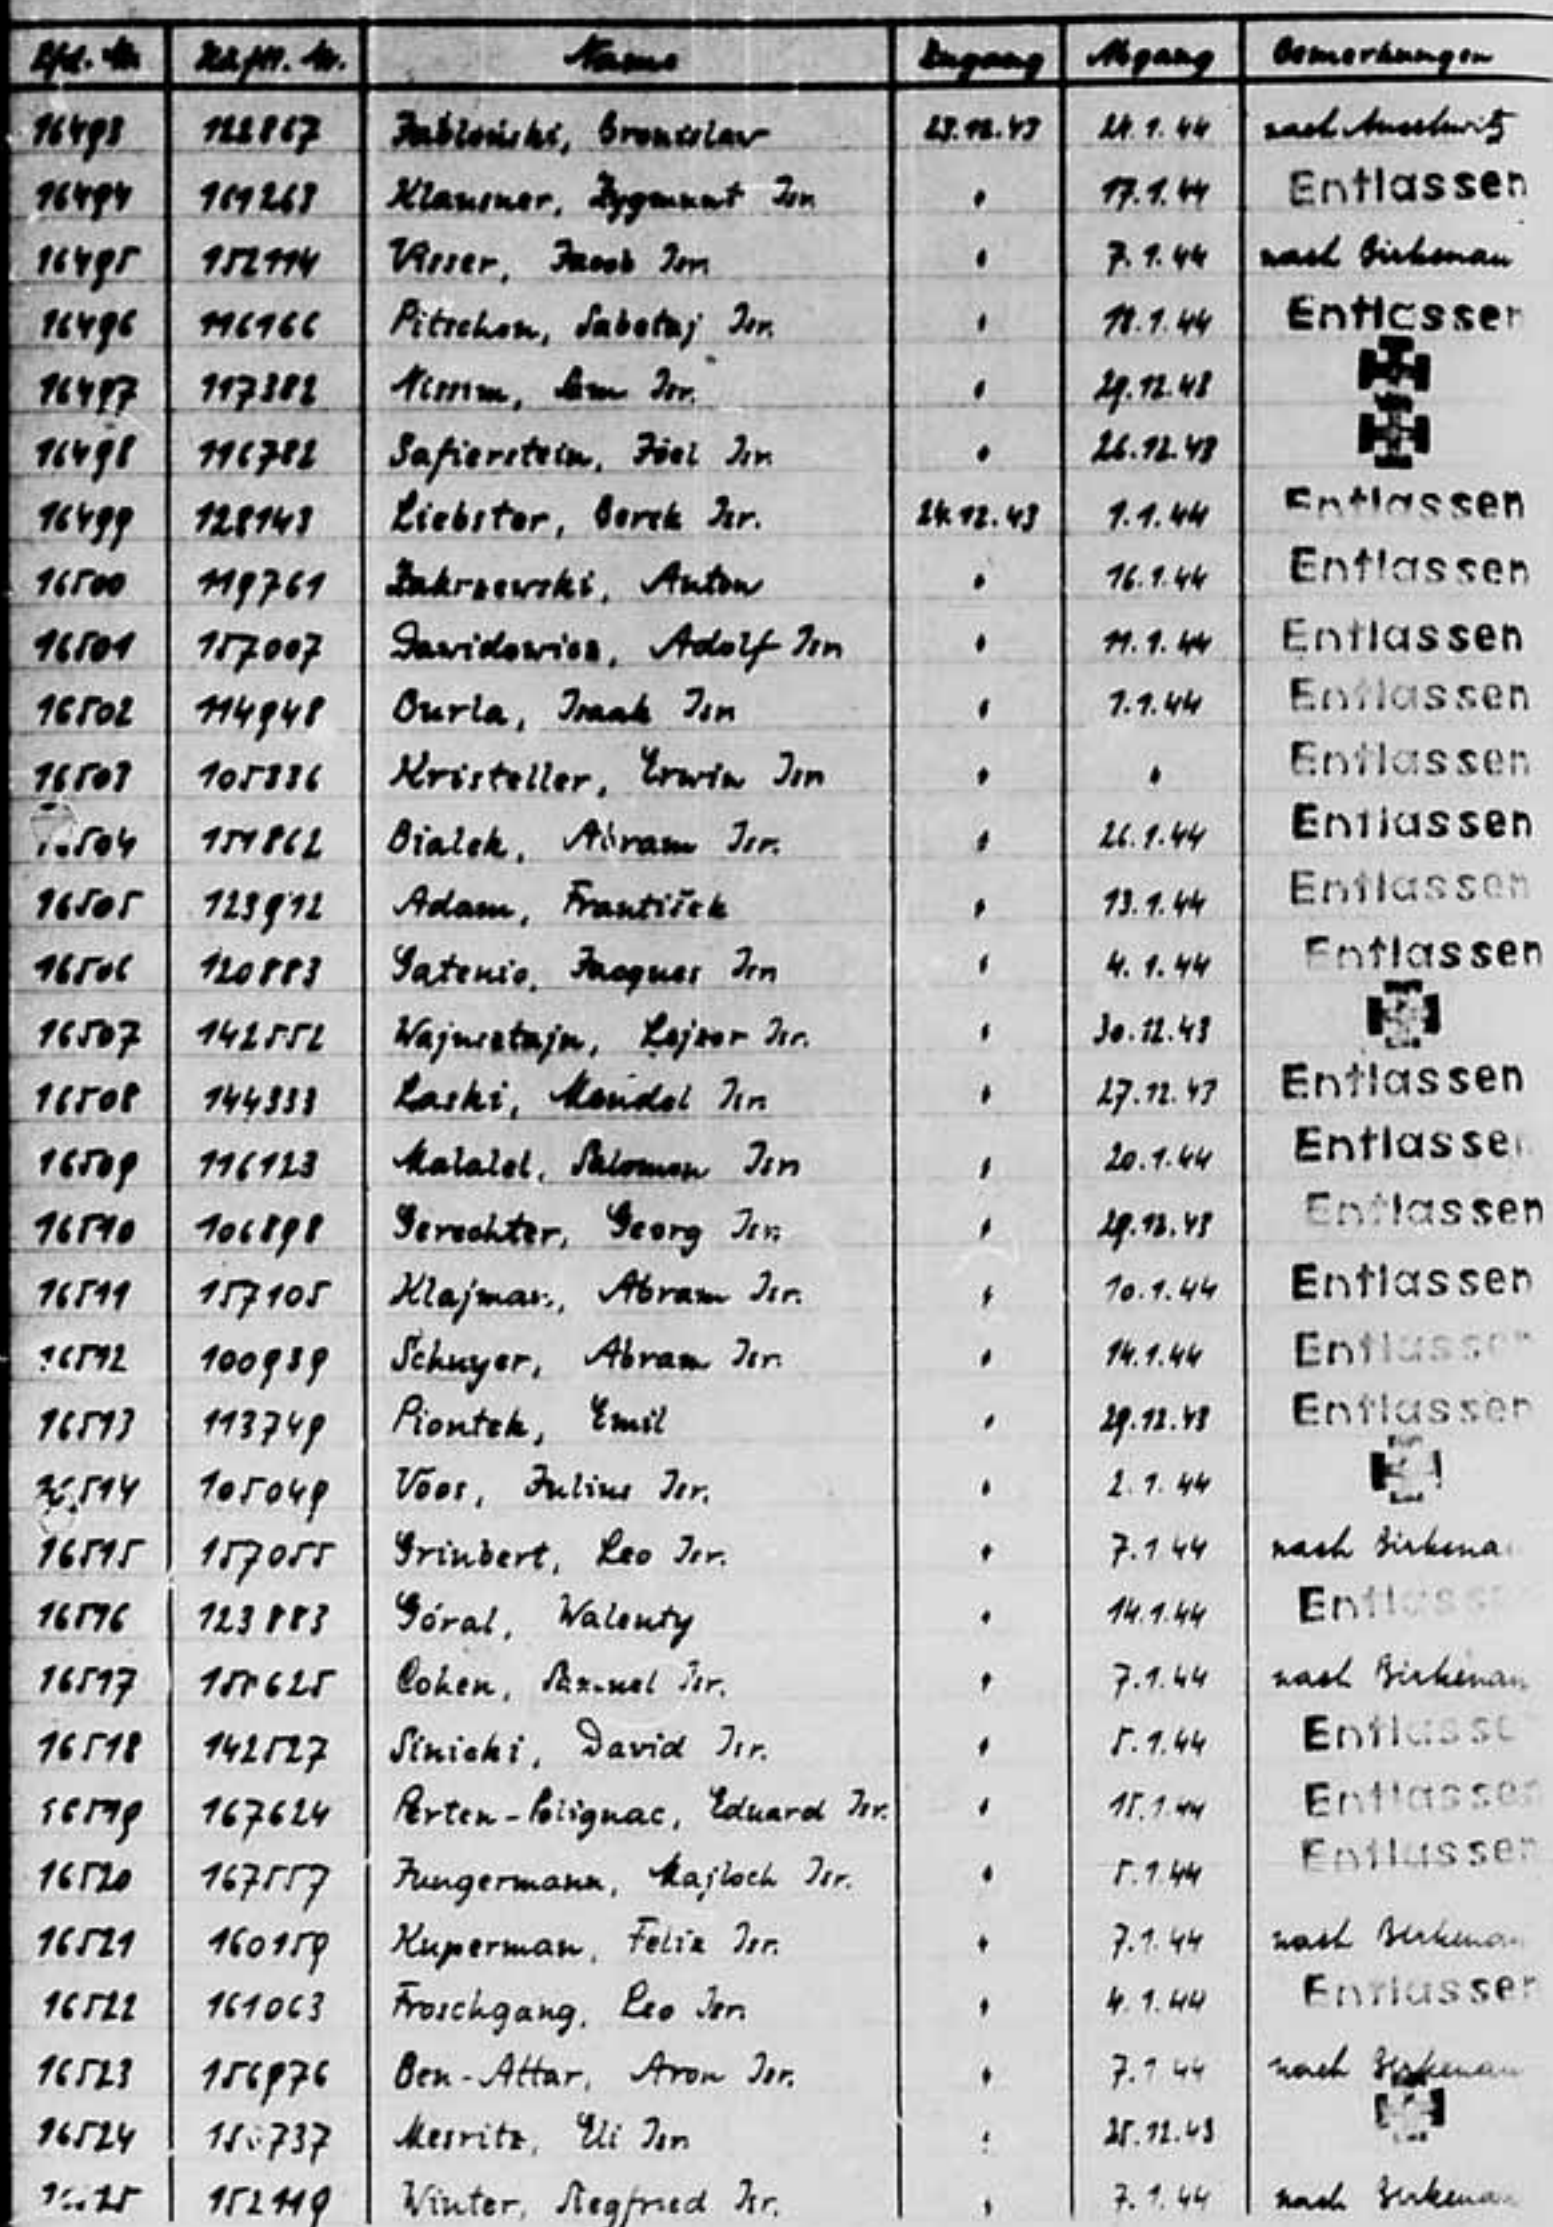 Lfd. Nr. Häftl. Nr. Name Zugang Abgang Bemerkungen
16493 122867 Jabłoński, Bronislaw 23.12.43 24.1.44 nach Auschwitz
16494 161263 Klausner, Zygmunt Isr. " 17.1.44 Entlassen
16495 152114 Visser, Jacob Isr. " 7.1.44 nach Birkenau
16496 116166 Pitschon, Sabetaj Isr. " 18.1.44 Entlassen
16497 117382 Isr. " 29.12.43
16498 116782 Safierstein, Joel Isr. " 26.12.43
16499 128143 Liebster, Berek Isr. 24.12.43 1.1.44 Entlassen
16500 119761 Zakrzewski, Anton " 16.1.44 Entlassen
16501 157007 Dawidowicz, Adolf Isr. " 11.1.44 Entlassen
16502 114948 Burla, Isaak Isr. " 1.1.44 Entlassen
16503 105336 Kristeller, Erwin Isr. " " Entlassen
16504 151862 Bialek, Abram Isr. " 26.1.44 Entlassen
16505 123912 Adam, František " 13.1.44 Entlassen
16506 120883 Gatenio, Jacques Isr. " 4.1.44 Entlassen
16507 142552 Wajnsztajn, Lejzor Isr. " 30.12.43
16508 144333 Laski, Mendel Isr. " 27.12.43 Entlassen
16509 116123 Malalel, Salomon Isr. " 20.1.44 Entlassen
16510 106898 Gerechter, Georg Isr. " 29.12.43 Entlassen
16511 157105 Klajman, Abram Isr. " 10.1.44 Entlassen
16512 100939 Schuyer, Abram Isr. " 14.1.44 Entlassen
16513 113749 Piontek, Emil " 29.12.43 Entlassen
16514 105049 Voos, Julius Isr. " 2.1.44
16515 157055 Grinbert, Leo Isr. " 7.1.44 nach Birkenau
16516 123883 Góral, Walenty " 14.1.44 Entlassen
16517 Cohen, Samuel Isr. " 7.1.44 nach Birkenau
16518 142527 Sinicki, David Isr. " 5.1.44 Entlassen
16519 167624 Perten-Polignac, Eduard Isr. " 15.1.44 Entlassen
16520 167557 Jungermann, Majloch Isr. " 5.1.44 Entlassen
16521 160159 Kuperman, Felix Isr. " 7.1.44 nach Birkenau
16522 161063 Froschgang, Leo Isr. " 4.1.44 Entlassen
16523 156976 Ben-Attar, Aron Isr. " 7.1.44 nach Birkenau
16524 Mesritz, Eli Isr. " 25.12.43
16525 152119 Winter, Siegfried Isr. " 7.1.44 nach Birkenau